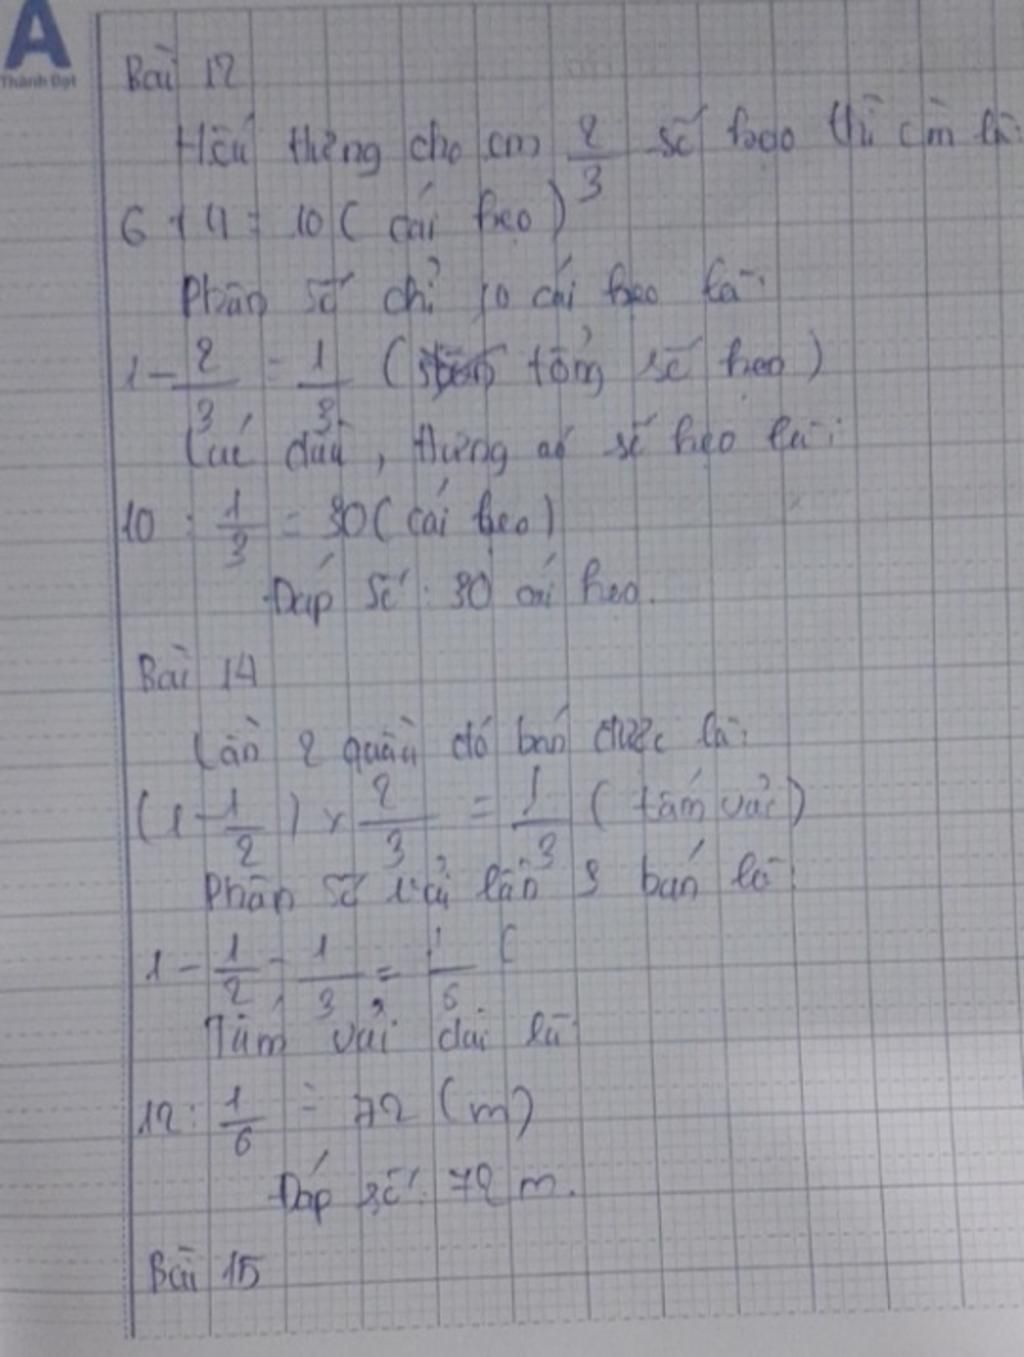 A
Thành Đạt
Bài 12
Nếu thùng cho em 2/3 số kẹo thì còn là:
6 + 4 = 10 (cái kẹo)
Phân số chỉ 10 cái kẹo là:
1 - 2/3 = 1/3 (tổng số kẹo)
Lúc đầu, thùng có số kẹo là:
10 : 1/3 = 30 (cái kẹo)
Đáp số: 30 cái kẹo.
Bài 14
Lần 2 quầy đó bán được là:
(1 - 1/2) x 2/3 = 1/3 (tấm vải)
Phân số vải lần 3 bán là
1 - 1/2 - 1/3 = 1/6 (
Tấm vải dài là
12 : 1/6 = 72 (m)
Đáp số: 72 m.
Bài 15